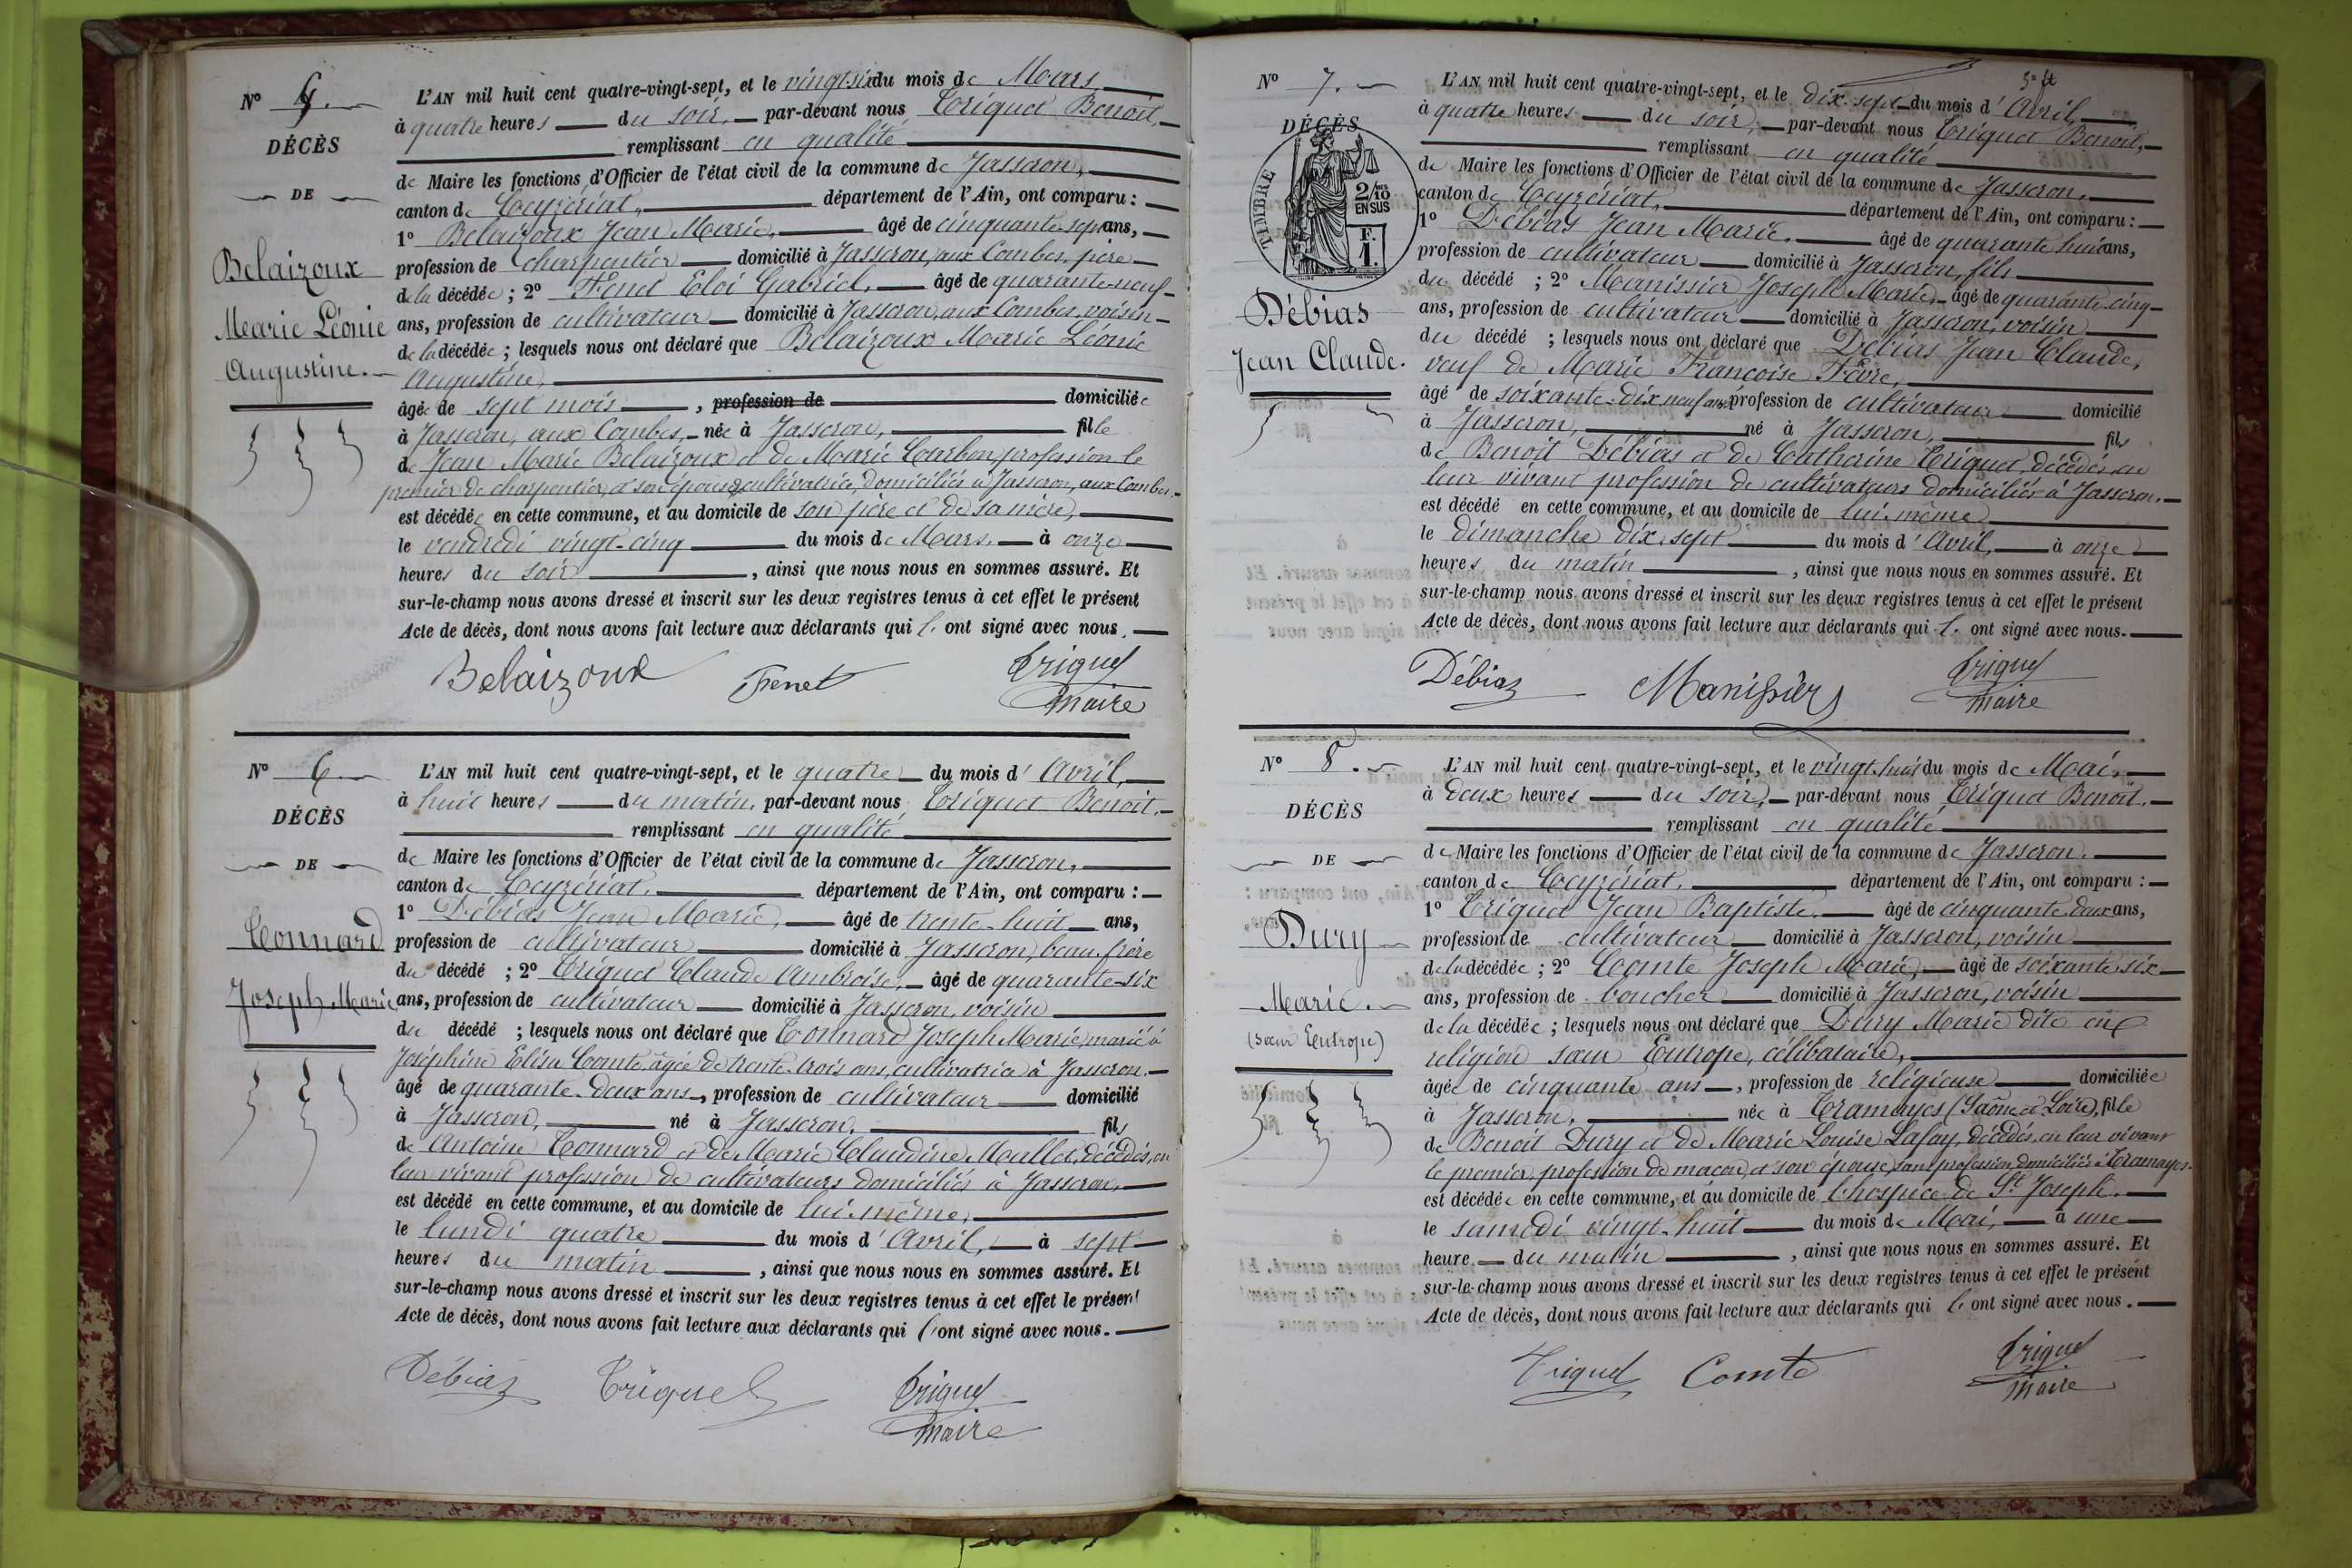 N° 5.
DÉCÈS
DE
Belaizoux
Marie Léonie
Augustine.
L'AN mil huit cent quatre-vingt-sept, et le vingt-six du mois de Mars,
à quatre heures du soir, par-devant nous Triquet Benoit,
remplissant en qualité
de Maire les fonctions d'Officier de l'état civil de la commune de Jasseron,
canton de Ceyzériat, département de l'Ain, ont comparu :
1° Belaizoux Jean Marie, âgé de cinquante-sept ans,
profession de charpentier domicilié à Jasseron, aux Combes, père
de la décédée ; 2° Fenet Eloi Gabriel, âgé de quarante-neuf
ans, profession de cultivateur domicilié à Jasseron, aux Combes, voisin
de la décédée ; lesquels nous ont déclaré que Belaizoux Marie Léonie
Augustine,
âgée de sept mois, profession de domiciliée
à Jasseron, aux Combes, née à Jasseron, fille
de Jean Marie Belaizoux et de Marie Curbon profession le
premier de charpentier, et son épouse cultivatrice, domiciliés à Jasseron, aux Combes.
est décédée en cette commune, et au domicile de son père et de sa mère,
le vendredi vingt-cinq du mois de Mars, à onze
heures du soir, ainsi que nous nous en sommes assuré. Et
sur-le-champ nous avons dressé et inscrit sur les deux registres tenus à cet effet le présent
Acte de décès, dont nous avons fait lecture aux déclarants qui l'ont signé avec nous.
Belaizoux Fenet Triquet
maire
N° 6
DÉCÈS
DE
Connard
Joseph Marie
L'AN mil huit cent quatre-vingt-sept, et le quatre du mois d'Avril,
à huit heures du matin, par-devant nous Triquet Benoit,
remplissant en qualité
de Maire les fonctions d'Officier de l'état civil de la commune de Jasseron,
canton de Ceyzériat, département de l'Ain, ont comparu :
1° Débias Jean Marie, âgé de trente-huit ans,
profession de cultivateur domicilié à Jasseron, beau-frère
du décédé ; 2° Triquet Claude Ambroise, âgé de quarante-six
ans, profession de cultivateur domicilié à Jasseron, voisin
du décédé ; lesquels nous ont déclaré que Connard Joseph Marie, marié à
Joséphine Elisa Comte, âgée de trente-trois ans, cultivatrice à Jasseron.
âgé de quarante-deux ans, profession de cultivateur domicilié
à Jasseron, né à Jasseron, fils
de Antoine Connard et de Marie Claudine Mallet, décédés, en
leur vivant profession de cultivateurs domiciliés à Jasseron,
est décédé en cette commune, et au domicile de lui-même,
le lundi quatre du mois d'Avril, à sept
heures du matin, ainsi que nous nous en sommes assuré. Et
sur-le-champ nous avons dressé et inscrit sur les deux registres tenus à cet effet le présent
Acte de décès, dont nous avons fait lecture aux déclarants qui l'ont signé avec nous.
Débias Triquet Triquet
maire
N° 7.
DÉCÈS
TIMBRE
2/10
EN SUS
F.
1.
Débias
Jean Claude.
L'AN mil huit cent quatre-vingt-sept, et le dix-sept du mois d'Avril,
à quatre heures du soir, par-devant nous Triquet Benoit,
remplissant en qualité
de Maire les fonctions d'Officier de l'état civil de la commune de Jasseron,
canton de Ceyzériat, département de l'Ain, ont comparu :
1° Débias Jean Marie, âgé de quarante-huit ans,
profession de cultivateur domicilié à Jasseron, fils
du décédé ; 2° Manissier Joseph Marie, âgé de quarante-cinq
ans, profession de cultivateur domicilié à Jasseron, voisin
du décédé ; lesquels nous ont déclaré que Débias Jean Claude,
veuf de Marie Françoise Fèvre,
âgé de soixante-dix neuf ans, profession de cultivateur domicilié
à Jasseron, né à Jasseron, fils
de Benoit Débias et de Catherine Triquet, décédés, en
leur vivant profession de cultivateurs domiciliés à Jasseron.
est décédé en cette commune, et au domicile de lui-même
le dimanche dix-sept du mois d'Avril, à onze
heures du matin, ainsi que nous nous en sommes assuré. Et
sur-le-champ nous avons dressé et inscrit sur les deux registres tenus à cet effet le présent
Acte de décès, dont nous avons fait lecture aux déclarants qui l'ont signé avec nous.
Débias Manissier Triquet
maire
N° 8.
DÉCÈS
DE
Dury
Marie.
(sœur Eutrope)
L'AN mil huit cent quatre-vingt-sept, et le vingt-huit du mois de Mai,
à deux heures du soir, par-devant nous Triquet Benoit,
remplissant en qualité
de Maire les fonctions d'Officier de l'état civil de la commune de Jasseron.
canton de Ceyzériat, département de l'Ain, ont comparu :
1° Triquet Jean Baptiste, âgé de cinquante-deux ans,
profession de cultivateur domicilié à Jasseron, voisin
de la décédée ; 2° Comte Joseph Marie, âgé de soixante-six
ans, profession de boucher domicilié à Jasseron, voisin
de la décédée ; lesquels nous ont déclaré que Dury Marie dite en
religion sœur Eutrope, célibataire,
âgée de cinquante ans, profession de religieuse domiciliée
à Jasseron, née à Tramayes (Saône et Loire), fille
de Benoit Dury et de Marie Louise Lafay, décédés, en leur vivant
le premier profession de maçon, et son épouse, sans profession, domiciliés à Tramayes.
est décédée en cette commune, et au domicile de l'hospice de St Joseph.
le samedi vingt-huit du mois de Mai, à une
heure du matin, ainsi que nous nous en sommes assuré. Et
sur-le-champ nous avons dressé et inscrit sur les deux registres tenus à cet effet le présent
Acte de décès, dont nous avons fait lecture aux déclarants qui l'ont signé avec nous.
Triquet Comte Triquet
maire